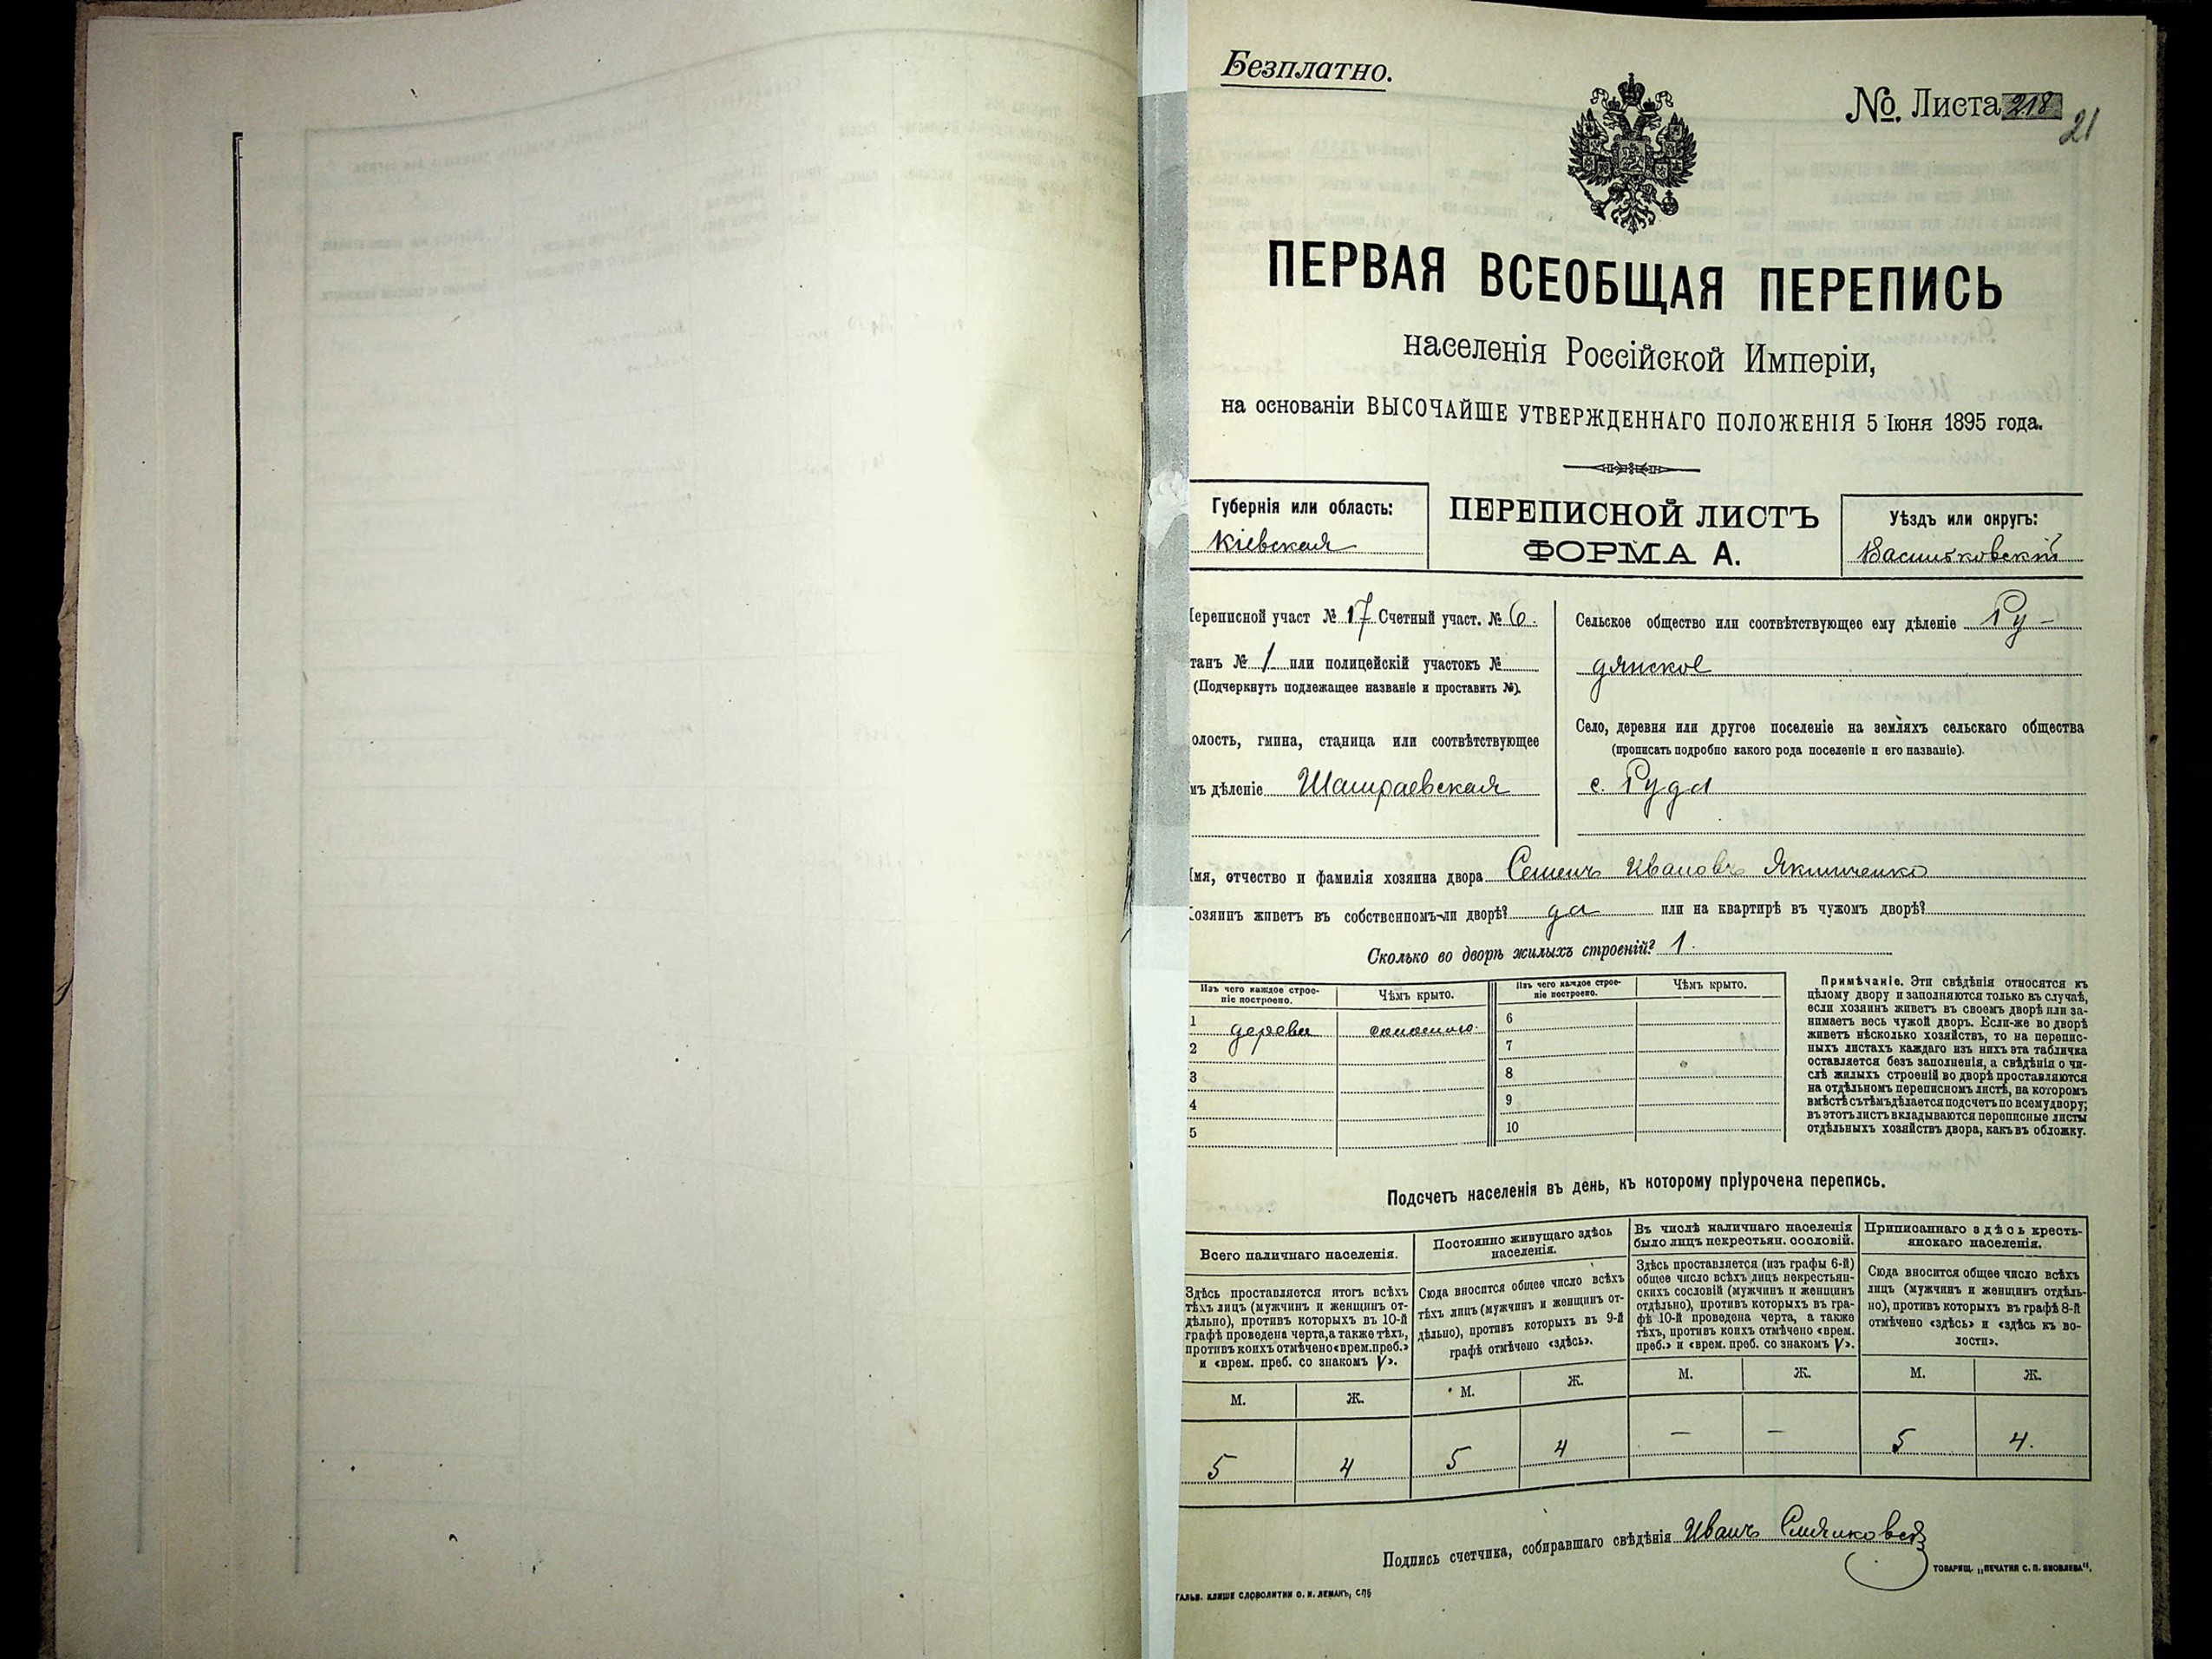 Безплатно.
№. Листа 218
21
ПЕРВАЯ ВСЕОБЩАЯ ПЕРЕПИСЬ
населенія Россійской Имперіи,
на основаніи ВЫСОЧАЙШЕ УТВЕРЖДЕННАГО ПОЛОЖЕНІЯ 5 Іюня 1895 года.
Губернія или область:
Кіевская
ПЕРЕПИСНОЙ ЛИСТЪ
ФОРМА А.
Уѣздъ или округъ:
Васильковскій
ереписной участ № 17 Счетный участ. № 6.
танъ № 1 или полицейскій участокъ №
(Подчеркнуть подлежащее названіе и проставить №).
олость, гмина, станица или соотвѣтствующее
мъ дѣленіе Шамраевская
Сельское общество или соотвѣтствующее ему дѣленіе Ру-
дянское
Село, деревня или другое поселеніе на земляхъ сельскаго общества
(прописать подробно какого рода поселеніе и его названіе).
с. Руда
мя, отчество и фамилія хозяина двора Семенъ Ивановъ Якимченко
озяинъ живетъ въ собственномъ-ли дворѣ? да или на квартирѣ въ чужомъ дворѣ?
Сколько во дворѣ жилыхъ строеній? 1.
Изъ чего каждое строе-
ніе построено.
Чѣмъ крыто.
Изъ чего каждое строе-
ніе построено.
Чѣмъ крыто.
1 дерева соломою.
2
3
4
5
6
7
8
9
10
Примѣчаніе. Эти свѣдѣнія относятся къ
цѣлому двору и заполняются только въ случаѣ,
если хозяинъ живетъ въ своемъ дворѣ или за-
нимаетъ весь чужой дворъ. Если-же во дворѣ
живетъ нѣсколько хозяйствъ, то на перепис-
ныхъ листахъ каждаго изъ нихъ эта табличка
оставляется безъ заполненія, а свѣдѣнія о чи-
слѣ жилыхъ строеній во дворѣ проставляются
на отдѣльномъ переписномъ листѣ, на которомъ
вмѣстѣ съ тѣмъ дѣлается подсчетъ по всему двору;
въ этотъ листъ вкладываются переписные листы
отдѣльныхъ хозяйствъ двора, какъ въ обложку.
Подсчетъ населенія въ день, къ которому пріурочена перепись.
Всего наличнаго населенія.
Здѣсь проставляется итогъ всѣхъ
тѣхъ лицъ (мужчинъ и женщинъ от-
дѣльно), противъ которыхъ въ 10-й
графѣ проведена черта, а также тѣхъ,
противъ коихъ отмѣчено «врем. преб.»
и «врем. преб. со знакомъ V».
М. Ж.
5 4
Постоянно живущаго здѣсь
населенія.
Сюда вносится общее число всѣхъ
тѣхъ лицъ (мужчинъ и женщинъ от-
дѣльно), противъ которыхъ въ 9-й
графѣ отмѣчено «здѣсь».
М. Ж.
5 4
Въ числѣ наличнаго населенія
было лицъ некрестьян. сословій.
Здѣсь проставляется (изъ графы 6-й)
общее число всѣхъ лицъ некрестьян-
скихъ сословій (мужчинъ и женщинъ
отдѣльно), противъ которыхъ въ гра-
фѣ 10-й проведена черта, а также
тѣхъ, противъ коихъ отмѣчено «врем.
преб.» и «врем. преб. со знакомъ V».
М. Ж.
— —
Приписаннаго здѣсь кресть-
янскаго населенія.
Сюда вносится общее число всѣхъ
лицъ (мужчинъ и женщинъ отдѣль-
но), противъ которыхъ въ графѣ 8-й
отмѣчено «здѣсь» и «здѣсь къ во-
лости».
М. Ж.
5 4.
Подпись счетчика, собиравшаго свѣдѣнія Иванъ
ТОВАРИЩ. „ПЕЧАТНЯ С. П. ЯКОВЛЕВА".
ГАЛЬВ. КЛИШЕ СЛОВОЛИТНИ О. И. ЛЕМАНЪ, СПБ